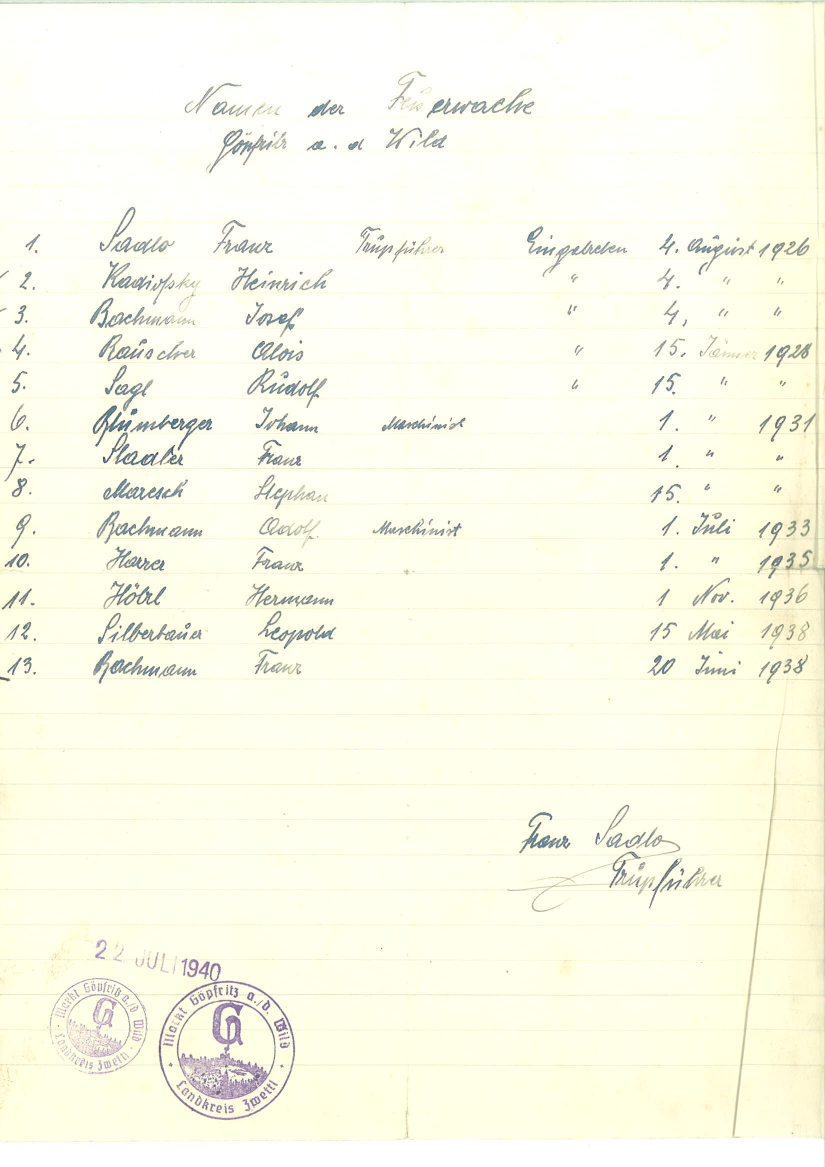 Namen der Feuerwache
Göpfritz a. d Wild
1. Sadlo Franz Trupführer Eingetreten 4. August 1926
2. Kadiofsky Heinrich " 4. " "
3. Bachmann Josef " 4, " "
4. Rauscher Alois " 15. Jänner 1928
5. Sagl Rudolf " 15. " "
6. Blumberger Johann Maschinist 1. " 1931
7. Stadler Franz 1. " "
8. Maresch Stephan 15. " "
9. Bachmann Adolf. Maschinist 1. Juli 1933
10. Harrer Franz 1. " 1935
11. Hölzl Hermann 1 Nov. 1936
12. Silberbauer Leopold 15 Mai 1938
13. Bachmann Franz 20 Juni 1938
Franz Sadlo
Trupführer
22 JULI 1940
Markt Göpfritz a./d. Wild
G
Landkreis Zwettl
Markt Göpfritz a./d. Wild
G
Landkreis Zwettl